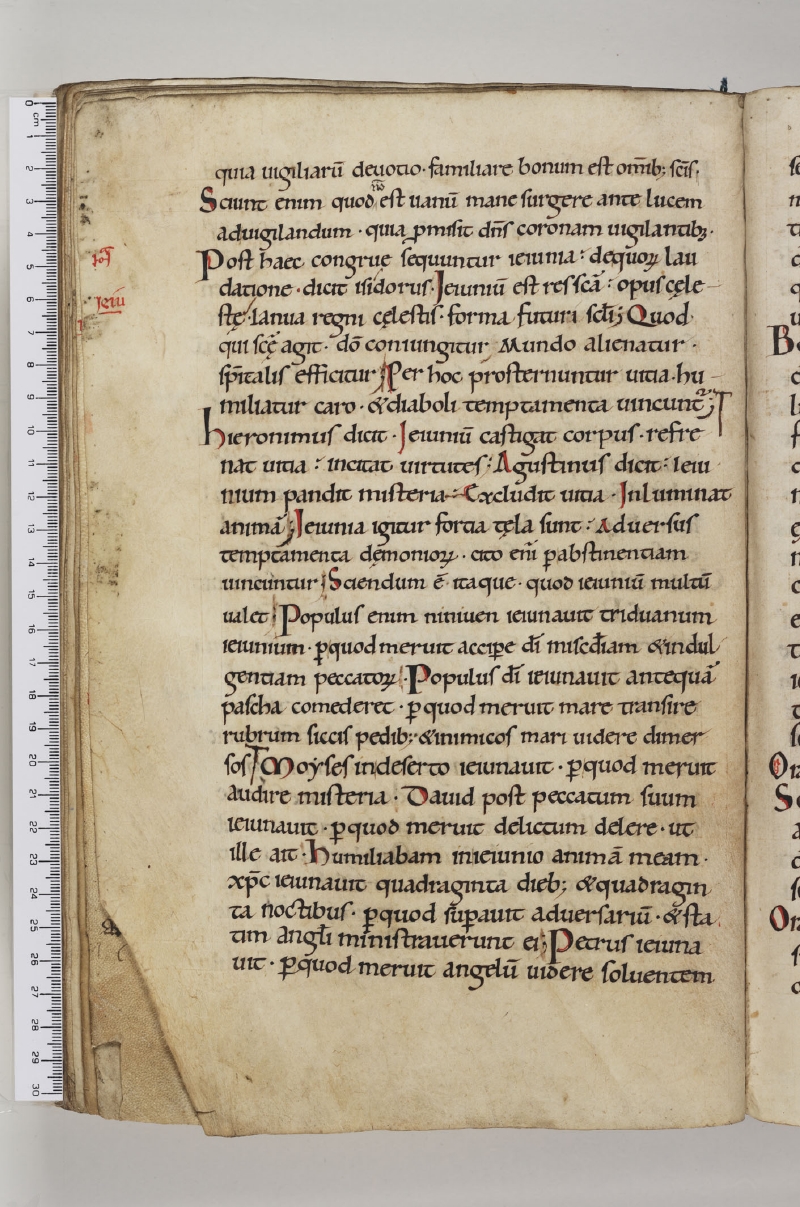 quia uigiliarū deuotio · familiare bonum est omīb; scīs ·
Sciunt enim quod nō est uanū mane surgere ante lucem
aduigilandum · quia p̄misit dn̄s coronam uigilantib; ·
Post haec congrue sequuntur ieiunia : dequoꝝ lau
datione · dicit isidorus · Ieiuniū est res scā : opus cęle
stę · Ianua regni cęlestis · forma futuri scl̄i; Quod
qui scē agit · dō coniungitur Mundo alienatur ·
sp̄italis efficitur; Per hoc prosternuntur uitia · hu
miliatur caro · & diaboli temptamenta uincunt̄;
hieronimus dicit · Ieiuniū castigat corpus · refre
nat uitia : incitat uirtutes : Agustinus dicit : Ieiu
nium pandit misteria · Excludit uitia · Inluminat
animā; Ieiunia igitur fortia tęla sunt : Aduersus
temptamenta demonioꝝ · cito enī ꝑabstinentiam
uincuntur; Sciendum ē itaque · quod ieiuniū multū
ualet; Populus enim niniuen ieiunauit triduanum
ieiunium · ꝑquod meruit accipe dī miscd̄iam & indul
gentiam peccatoꝝ; Populus dī ieiunauit antequā
pascha comederet · ꝑ quod meruit mare transire
rubrum siccis pedib; · & inimicos mari uidere dimer
sos Moyses indeserto ieiunauit · ꝑquod meruit
audire misteria · Dauid post peccatum suum
ieiunauit · ꝑquod meruit delictum delere · ut
ille ait · humiliabam inieiunio animā meam ·
xp̄c ieiunauit quadraginta dieb; & quadragin
ta noctibus · ꝑquod suꝑauit aduersariū · & sta
tim angl̄i ministrauerunt ei; Petrus ieiuna
uit · ꝑquod meruit angelū uidere soluentem
ieiū